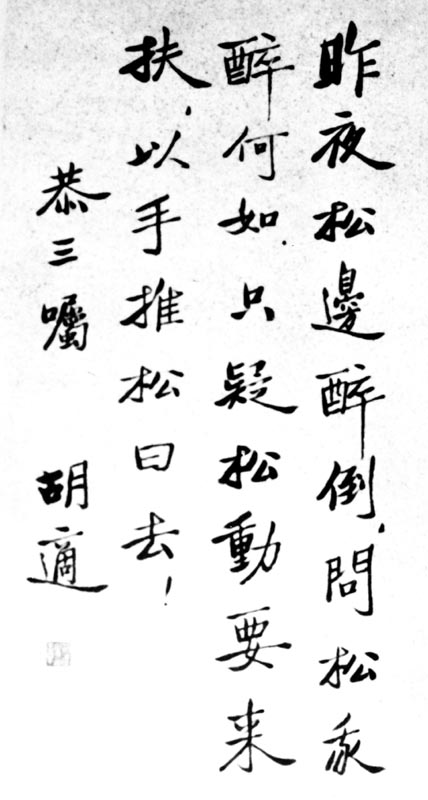 昨夜松邊醉倒,問松我
醉何如.只疑松動要来
扶,以手推松曰去!
恭三囑 胡適